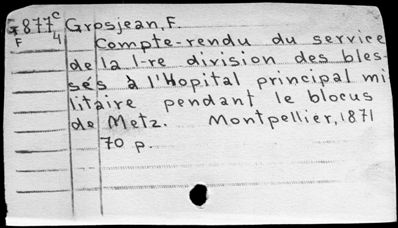 G877c Grosjean, F.
F 4 Compte-rendu du service
de la 1-re division des bles-
sés à l'Hopital principal mi
litaire pendant le blocus
de Metz. Montpellier, 1871
70 p.